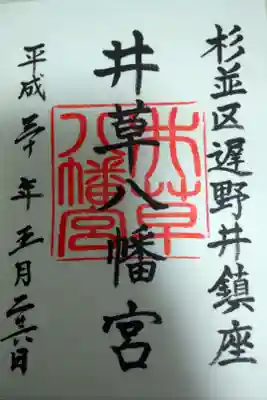 杉並区遅野井鎮座
井草八幡宮
井草八幡宮
平成三十年五月二十六日